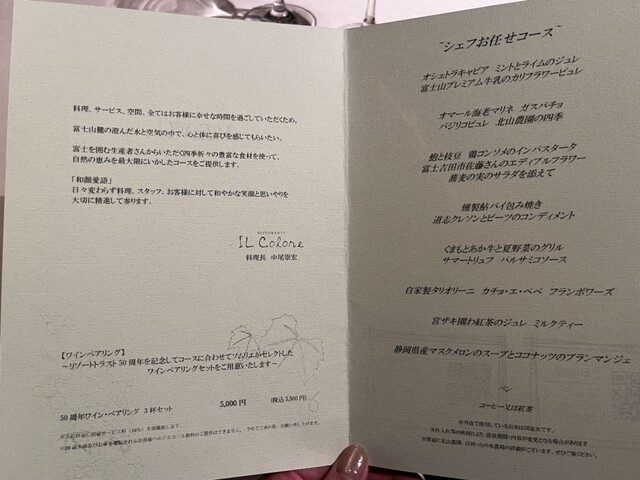 料理、サービス、空間、全てはお客様に幸せな時間を過ごしていただくため。
富士山麓の澄んだ水と空気の中で、心と体に喜びを感じてもらいたい。
富士を囲む生産者さんからいただく四季折々の豊富な食材を使って、
自然の恵みを最大限にいかしたコースをご提供します。
「和顔愛語」
日々変わらず料理、スタッフ、お客様に対して和やかな笑顔と思いやりを
大切に精進して参ります。
RISTORANTE
IL Colore
料理長 中尾崇宏
【ワインペアリング】
～リゾートトラスト50周年を記念してコースに合わせてソムリエがセレクトした
ワインペアリングセットをご用意いたします～
50周年ワイン・ペアリング 3杯セット 5,000円 (税込5,500円)
~シェフお任せコース~
オシェトラキャビア ミントとライムのジュレ
富士山プレミアム牛乳のカリフラワーピュレ
オマール海老マリネ ガスパチョ
バジリコピュレ 北山農園の四季
鮑と枝豆 鶏コンソメのインパスタータ
富士吉田市佐藤さんのエディアルフラワー
蕎麦の実のサラダを添えて
燻製鮎パイ包み焼き
道志クレソンとビーツのコンディメント
くまもとあか牛と夏野菜のグリル
サマートリュフ バルサミコソース
自家製タリオリーニ カチョ・エ・ペペ フランボワーズ
宮ザキ園わ紅茶のジュレ ミルクティー
静岡県産マスクメロンのスープとココナッツのブランマンジェ
パン
コーヒー又は紅茶
※当店で使用しているお米は国産米です。
※仕入れ等の状況により、産地銘柄・内容が変更となる場合があります